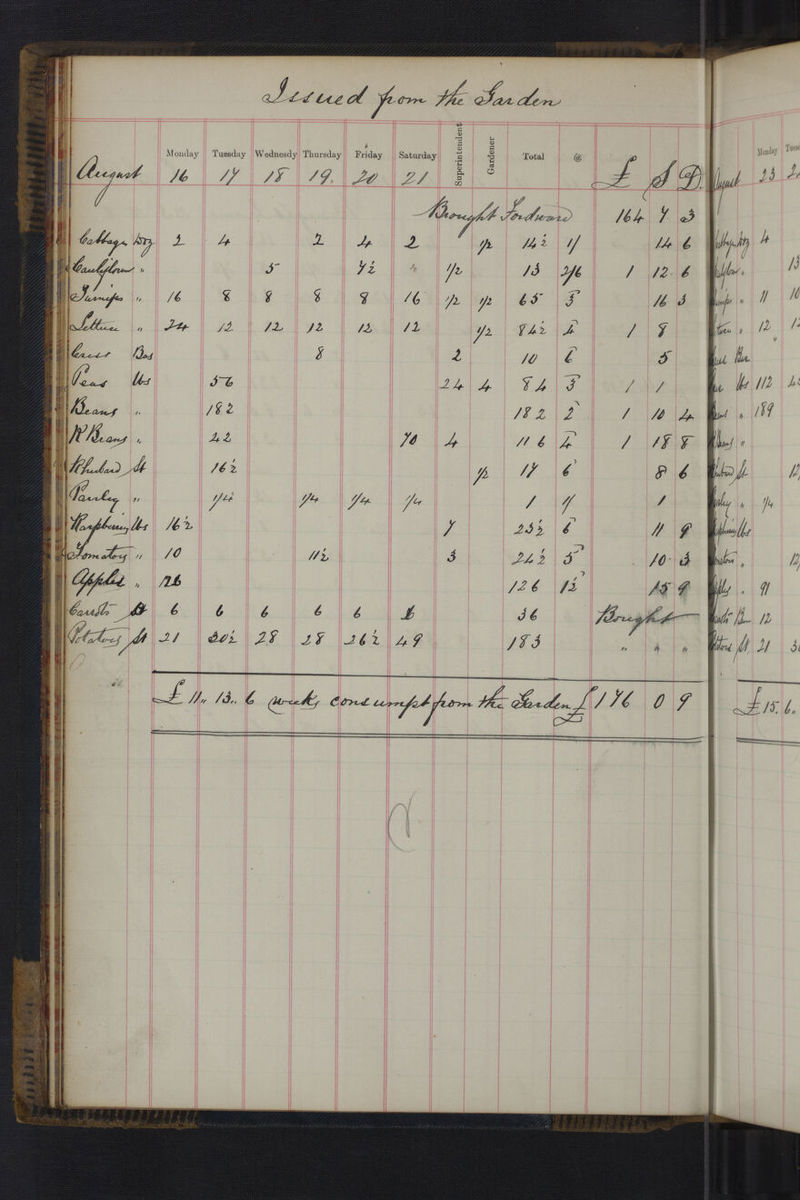 Issued from the Garden
Monday Tuesday Wednesdy Thursday Friday Saturday Superintendent Gardener Total @
August 16 17 18 19. 20 21 £ S D
Brought Fordward 164 7 3
Cabbage Doz 2 4 2 4 2 1/2 14 1/2 1/ 14 6
Cauliflour " 5 7 1/2 1/2 13 2/6 1 12. 6
Turnips " 16 8 8 8 8 16 1/2 1/2 65 3 16 3
Lettuce " 24 12 12 12 12 12 1/2 84 1/2 4 1 8
Cress Bas 8 2 10 6 5
Peas lbs 56 24 4 84 3 1 1
Beans " 182 182 2 1 10 4
R Beans " 42 70 4 116 4 1 18 8
Rhubard St 16 1/2 1/2 17 6 8 6
Parsley " 1/4 1/4 1/4 1/4 1 1/ 1
Raspberry lbs 16 1/2 7 23 1/2 6 11 9
Tomatoes " 10 11 1/2 3 24 1/2 5 10 3
Apples " 126 126 1 1/2 15 9
Carrots 6 6 6 6 6 6 36 Bought
Potatoes St 21 30 1/2 28 28 26 1/2 49 183 " " "
£ 11 " 13 .. 6 weeks consumpt from the Garden £ 176 0 9
Monday
August 23
4
13
" 11 10
" 12
lbs 112
" 189
" 1/4
" 91
12
St 21
£ 15. 6.